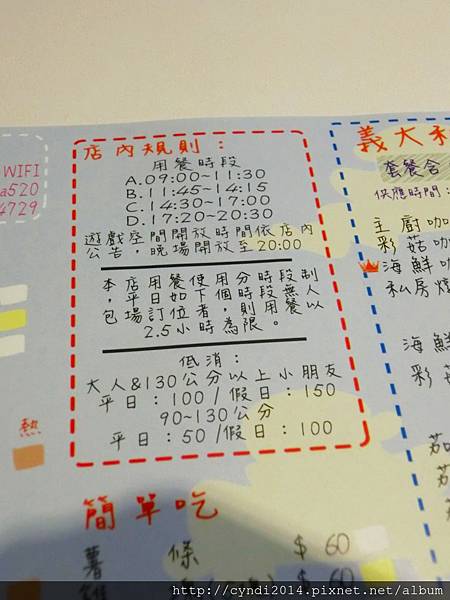 WIFI
a520
4729
店內規則：
用餐時段
A.09:00~11:30
B.11:45~14:15
C.14:30~17:00
D.17:20~20:30
遊戲空間開放時間依店內
公告，晚場開放至20:00
本店用餐使用分時段制
，平日如下個時段無人
包場訂位者，則用餐以
2.5小時為限。
低消：
大人&130公分以上小朋友
平日：100/假日：150
90~130公分
平日：50/假日：100
熱
簡單吃
薯 條 $ 60
$ 60
義大利
套餐含
供應時間：
主廚咖
彩菇咖
海鮮咖
私房燉
海鮮
彩菇
茄
茄
http://cyndi2014.pixnet.net/album